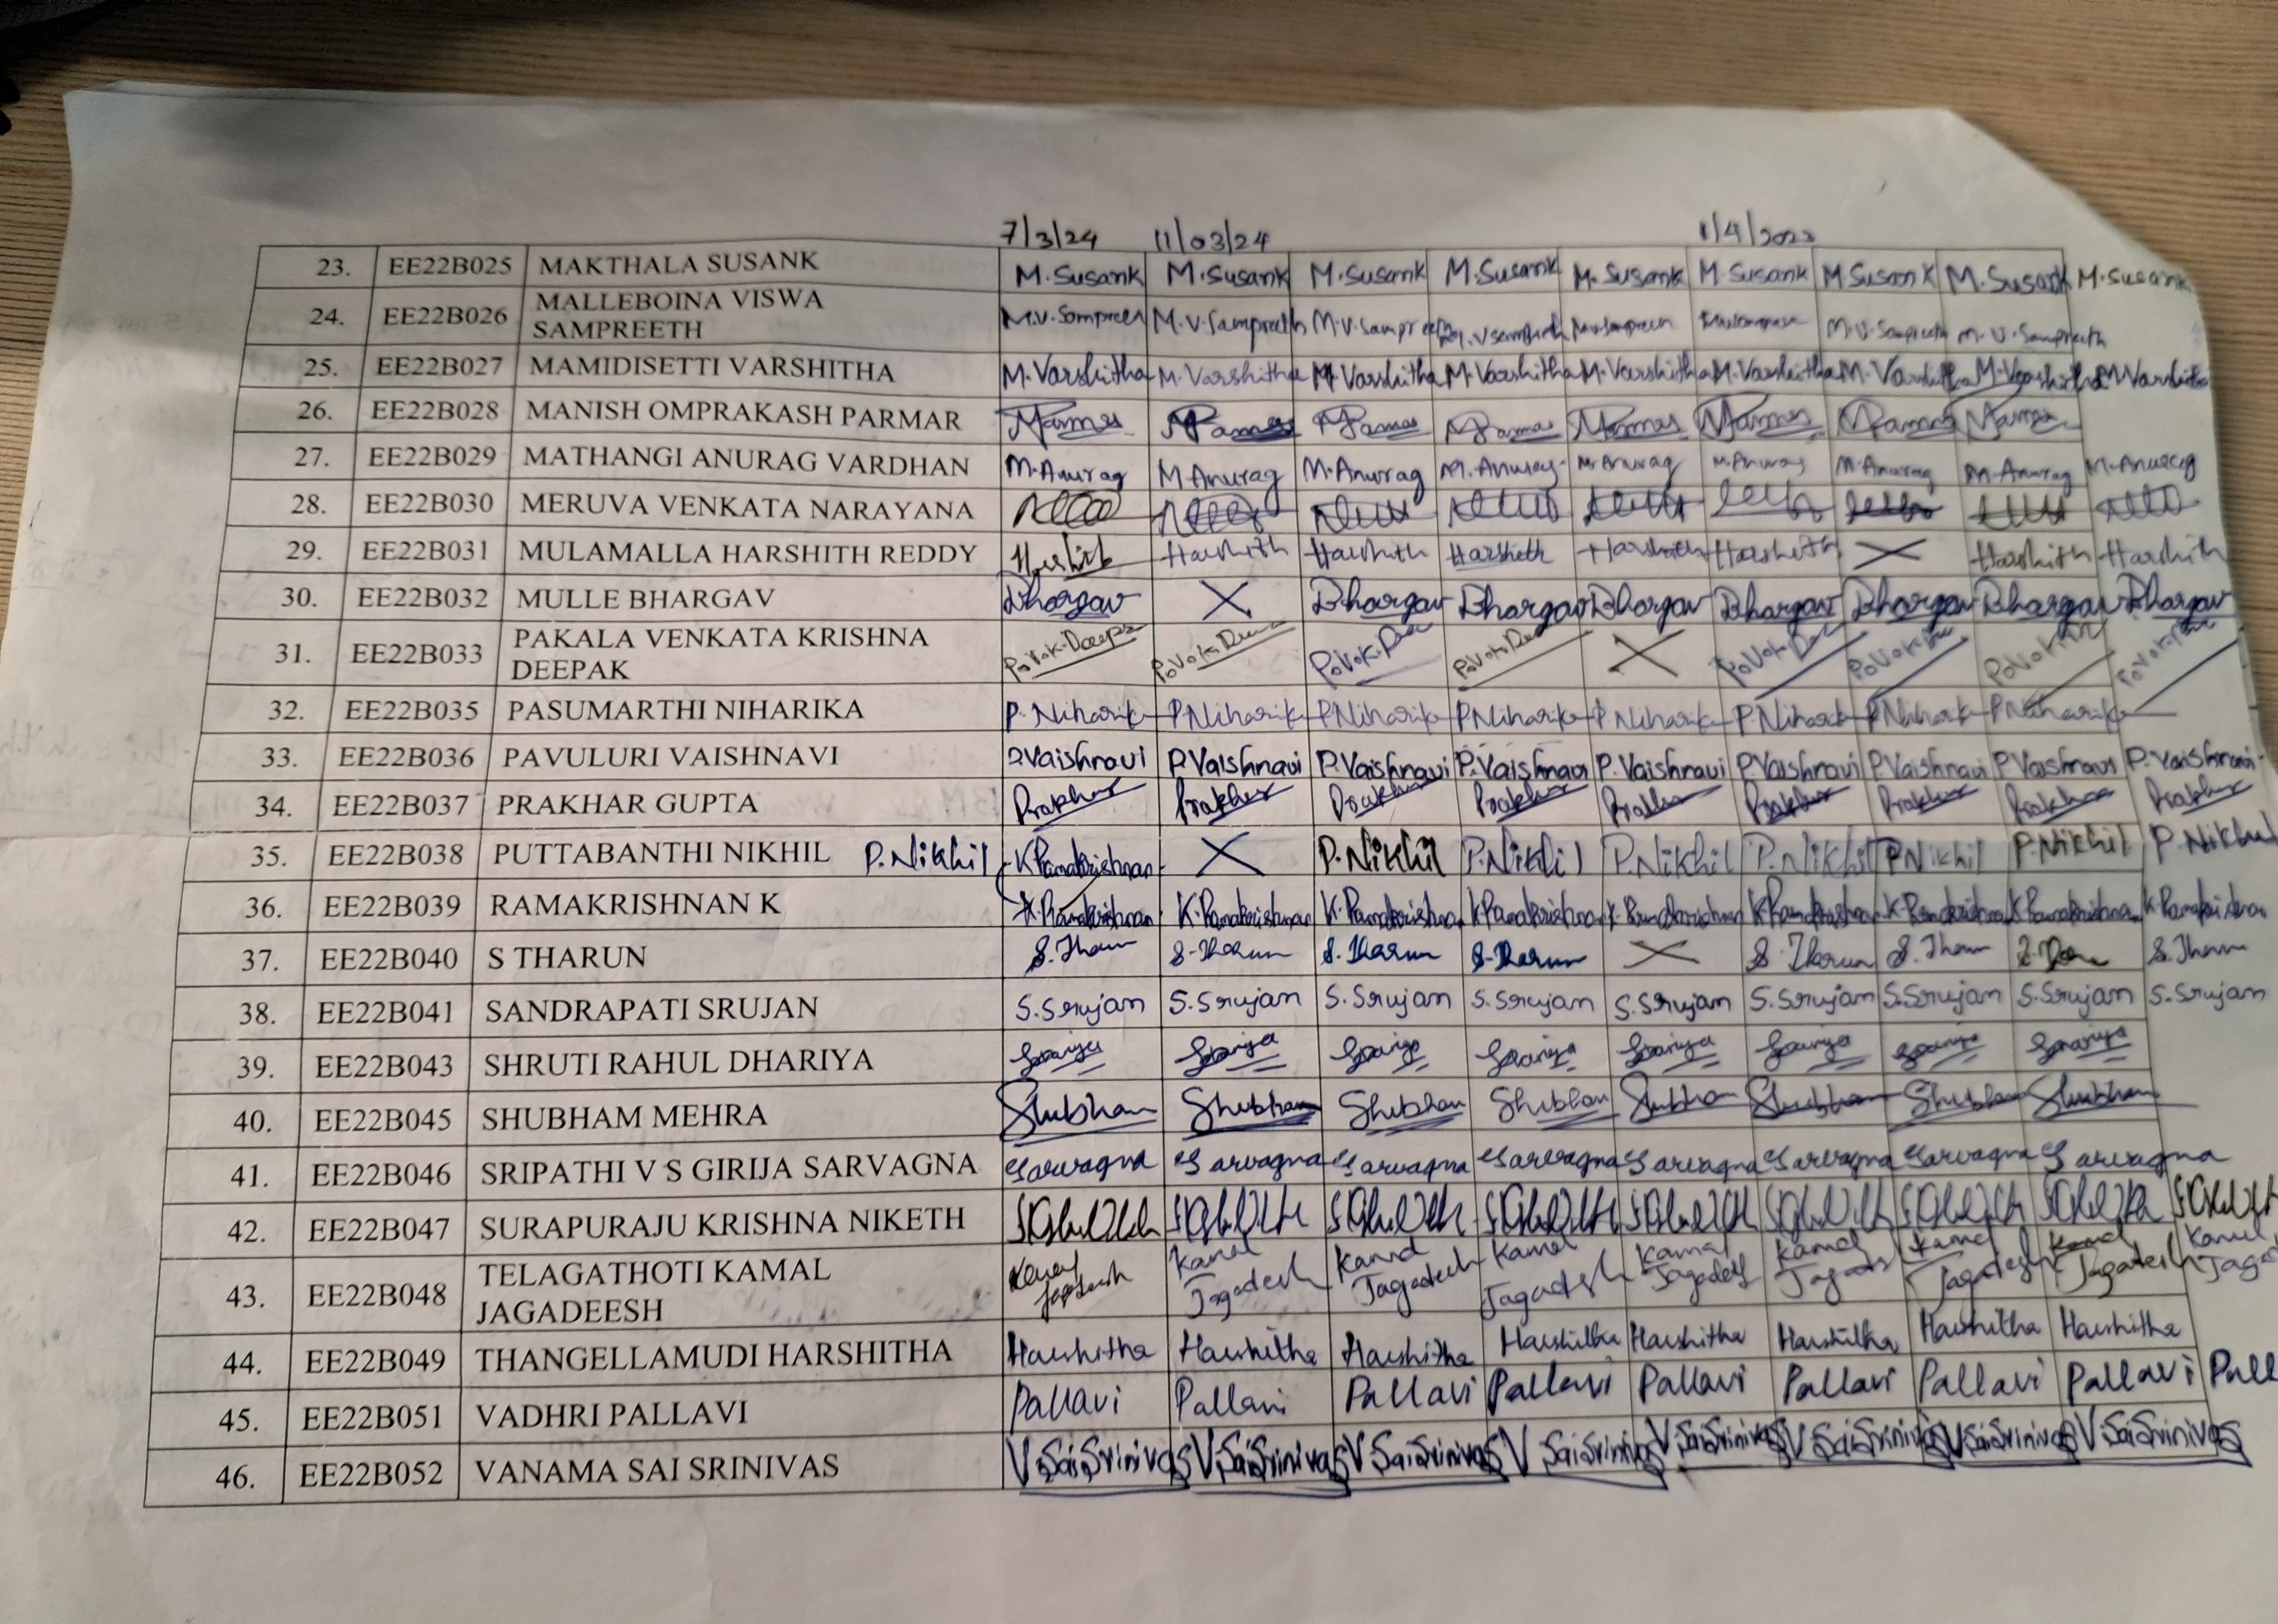 7/3/24 11/03/24 1/4/2022
23. EE22B025 MAKTHALA SUSANK M.Susank M.Susank M.Susank M.Susank M.Susank M.Susank M Susank M.Susank M.Susank
24. EE22B026 MALLEBOINA VISWA SAMPREETH M.V.Sampreeth M.V.Sampreeth M.V.Sampreeth M.V.Sampreeth M.V.Sampreeth
25. EE22B027 MAMIDISETTI VARSHITHA M.Varshitha M.Varshitha M.Varshitha M.Varshitha M.Varshitha M.Varshitha M.Varshitha M.Varshitha M.Varshitha
26. EE22B028 MANISH OMPRAKASH PARMAR
27. EE22B029 MATHANGI ANURAG VARDHAN M.Anurag M Anurag M.Anurag M.Anurag M.Anurag M.Anurag M.Anurag M.Anurag M.Anurag
28. EE22B030 MERUVA VENKATA NARAYANA
29. EE22B031 MULAMALLA HARSHITH REDDY Harshith Harshith Harshith Harshith Harshith Harshith X Harshith Harshith
30. EE22B032 MULLE BHARGAV Bhargav X Bhargav Bhargav Bhargav Bhargav Bhargav Bhargav Bhargav
31. EE22B033 PAKALA VENKATA KRISHNA DEEPAK P.V.K.Deepak X
32. EE22B035 PASUMARTHI NIHARIKA P.Niharika P.Niharika P.Niharika P.Niharika P.Niharika P.Niharika P.Niharika P.Niharika
33. EE22B036 PAVULURI VAISHNAVI P.Vaishnavi P.Vaishnavi P.Vaishnavi P.Vaishnavi P.Vaishnavi P.Vaishnavi P.Vaishnavi P.Vaishnavi P.Vaishnavi
34. EE22B037 PRAKHAR GUPTA Prakhar Prakhar Prakhar Prakhar Prakhar Prakhar Prakhar Prakhar Prakhar
35. EE22B038 PUTTABANTHI NIKHIL P.Nikhil K Ramakrishnan X P.Nikhil P.Nikhil P.Nikhil P.Nikhil P.Nikhil P.Nikhil P.Nikhil
36. EE22B039 RAMAKRISHNAN K K.Ramakrishnan K.Ramakrishnan K.Ramakrishnan K.Ramakrishnan K.Ramakrishnan K.Ramakrishnan K.Ramakrishnan K.Ramakrishnan K.Ramakrishnan
37. EE22B040 S THARUN S.Tharun S.Tharun S.Tharun S.Tharun X S.Tharun S.Tharun S.Tharun
38. EE22B041 SANDRAPATI SRUJAN S.Srujan S.Srujan S.Srujan S.Srujan S.Srujan S.Srujan S.Srujan S.Srujan S.Srujan
39. EE22B043 SHRUTI RAHUL DHARIYA
40. EE22B045 SHUBHAM MEHRA Shubham Shubham Shubham Shubham Shubham Shubham Shubham Shubham
41. EE22B046 SRIPATHI V S GIRIJA SARVAGNA Sarvagna Sarvagna Sarvagna Sarvagna Sarvagna Sarvagna Sarvagna Sarvagna
42. EE22B047 SURAPURAJU KRISHNA NIKETH
43. EE22B048 TELAGATHOTI KAMAL JAGADEESH Kamal Jagadeesh Kamal Jagadeesh Kamal Jagadeesh Kamal Jagadeesh Kamal Jagadeesh Kamal Jagadeesh Kamal Jagadeesh Kamal Jagadeesh
44. EE22B049 THANGELLAMUDI HARSHITHA Harshitha Harshitha Harshitha Harshitha Harshitha Harshitha Harshitha Harshitha
45. EE22B051 VADHRI PALLAVI Pallavi Pallavi Pallavi Pallavi Pallavi Pallavi Pallavi Pallavi Pall
46. EE22B052 VANAMA SAI SRINIVAS V.SaiSrinivas V.SaiSrinivas V SaiSrinivas V SaiSrinivas V SaiSrinivas V SaiSrinivas V SaiSrinivas V SaiSrinivas